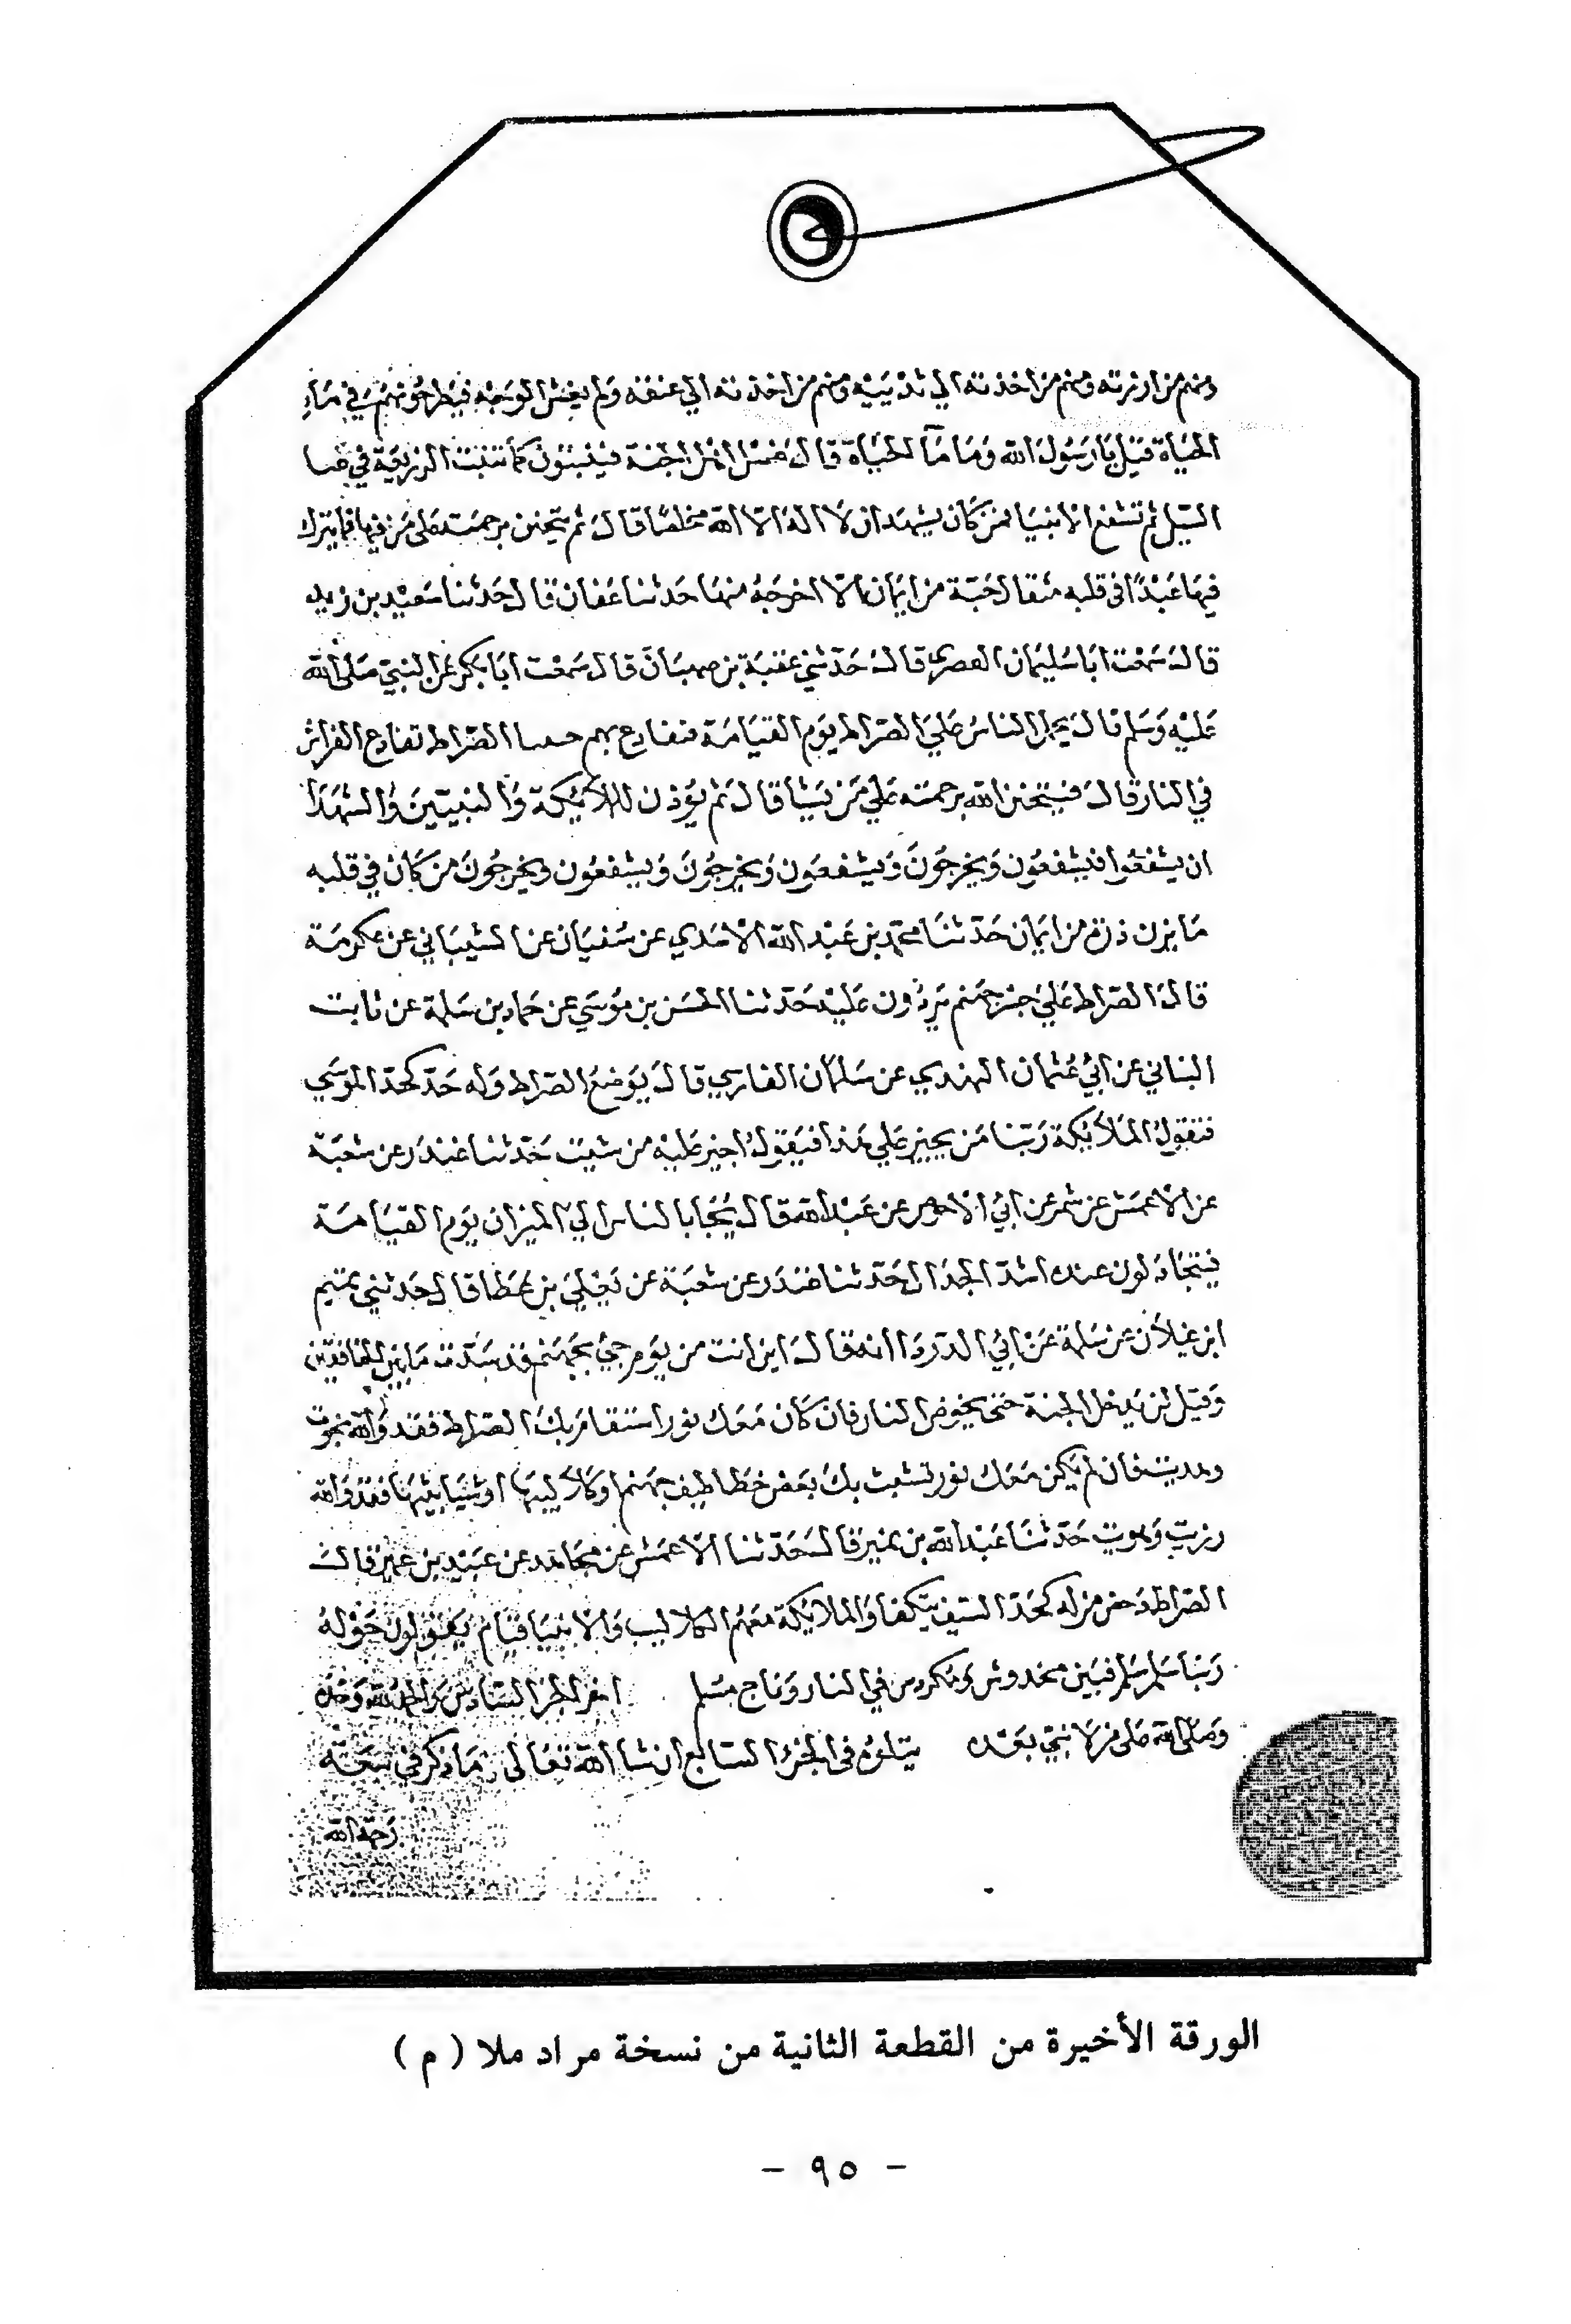 ومنهم من ازرته ومنهم من اخذته الي ثدييه ومنهم من اخذته الي عنقه ولم يغش الوجه فيطرحونهم في ماء
الحياة قيل يا رسول الله وما ماء الحياة قال غسل اهل الجنة فينبتون كما تنبت الزريعة في غثا
السيل ثم تشفع الانبيا لمن كان يشهد ان لا اله الا الله مخلصا قال ثم يتحنن برحمته على من فيها فما يترك
فيها عبدًا في قلبه مثقال حبة من ايمان الا اخرجه منها حدثنا عفان قال حدثنا سعيد بن زيد
قال سمعت ابا سليمان العصري قال حدثني عقبة بن صهبان قال سمعت ابا بكر عن النبي صلى الله
عليه وسلم قال يحمل الناس علي الصراط يوم القيامة فتقادع بهم الصراط تقادع الفراش
في النار قال فيتحنن الله برحمته علي من يشا قال ثم يؤذن للملائكة والنبيين والشهدا
ان يشفعوا فيشفعون ويخرجون ويشفعون ويخرجون ويشفعون ويخرجون من كان في قلبه
ما يزن ذرة من ايمان حدثنا محمد بن عبد الله الاسدي عن سفيان عن الشيباني عن عكرمة
قال الصراط علي جسر جهنم يردون عليه حدثنا الحسن بن موسي عن حماد بن سلمة عن ثابت
البناني عن ابي عثمان النهدي عن سلمان الفارسي قال يوضع الصراط وله حد كحد الموسي
فتقول الملائكة ربنا من يجيز علي هذا فيقول اجيز عليه من شيت حدثنا غندر عن شعبة
عن الاعمش عن شمر عن ابي الاحوص عن عبد الله قال يُجَا بالناس الي الميزان يوم القيامة
فيتجادلون عنده اشد الجدال حدثنا غندر عن شعبة عن يعلي بن عطا قال حدثني تميم
ابن غيلان عن سلمة عن ابي الدردا انه قال اين انت من يوم جي بجهنم قد سدت ما بين الخافقين
وقيل لن يدخل الجنة حتى يخوض النار فان كان معك نور استقام بك الصراط فقد والله نجوت
وهديت فان لم يكن معك نور تشبث بك بعض خطاطيف جهنم او كلاليبها فقد والله
رديت وهويت حدثنا عبد الله بن نمير قال حدثنا الاعمش عن مجاهد عن عبيد بن عمير قال
الصراط دحض مزلة كحد السيف يتكفا والملائكة معهم الكلاليب والانبيا قيام يقولون حوله
ربنا سلم سلم فبين مخدوش ومكردس في النار وناج مسلم اخر الجزء السادس والحمد لله وحده
وصلى الله على من لا نبي بعده يتلوه في الجزء السابع ان شا الله تعالى ما ذكر في سعة
رحمة الله
الورقة الأخيرة من القطعة الثانية من نسخة مراد ملا ( م )
- ٩٥ -